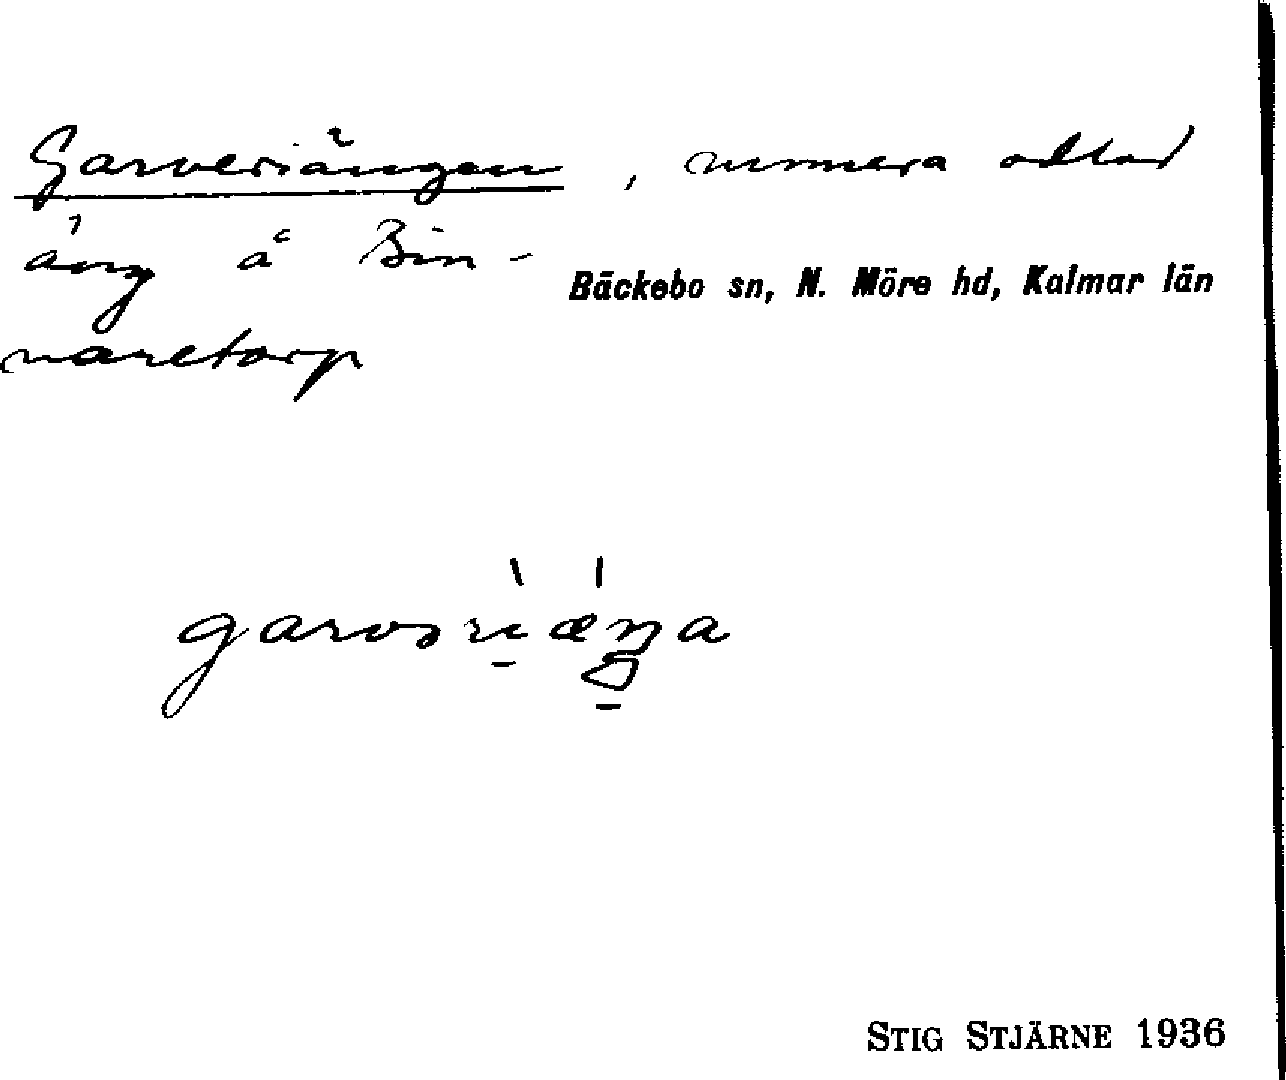 Garveriängen, numera odlad
äng å Bin-
Bäckebo sn, N. Möre hd, Kalmar län
naretorp
STIG STJÄRNE 1936